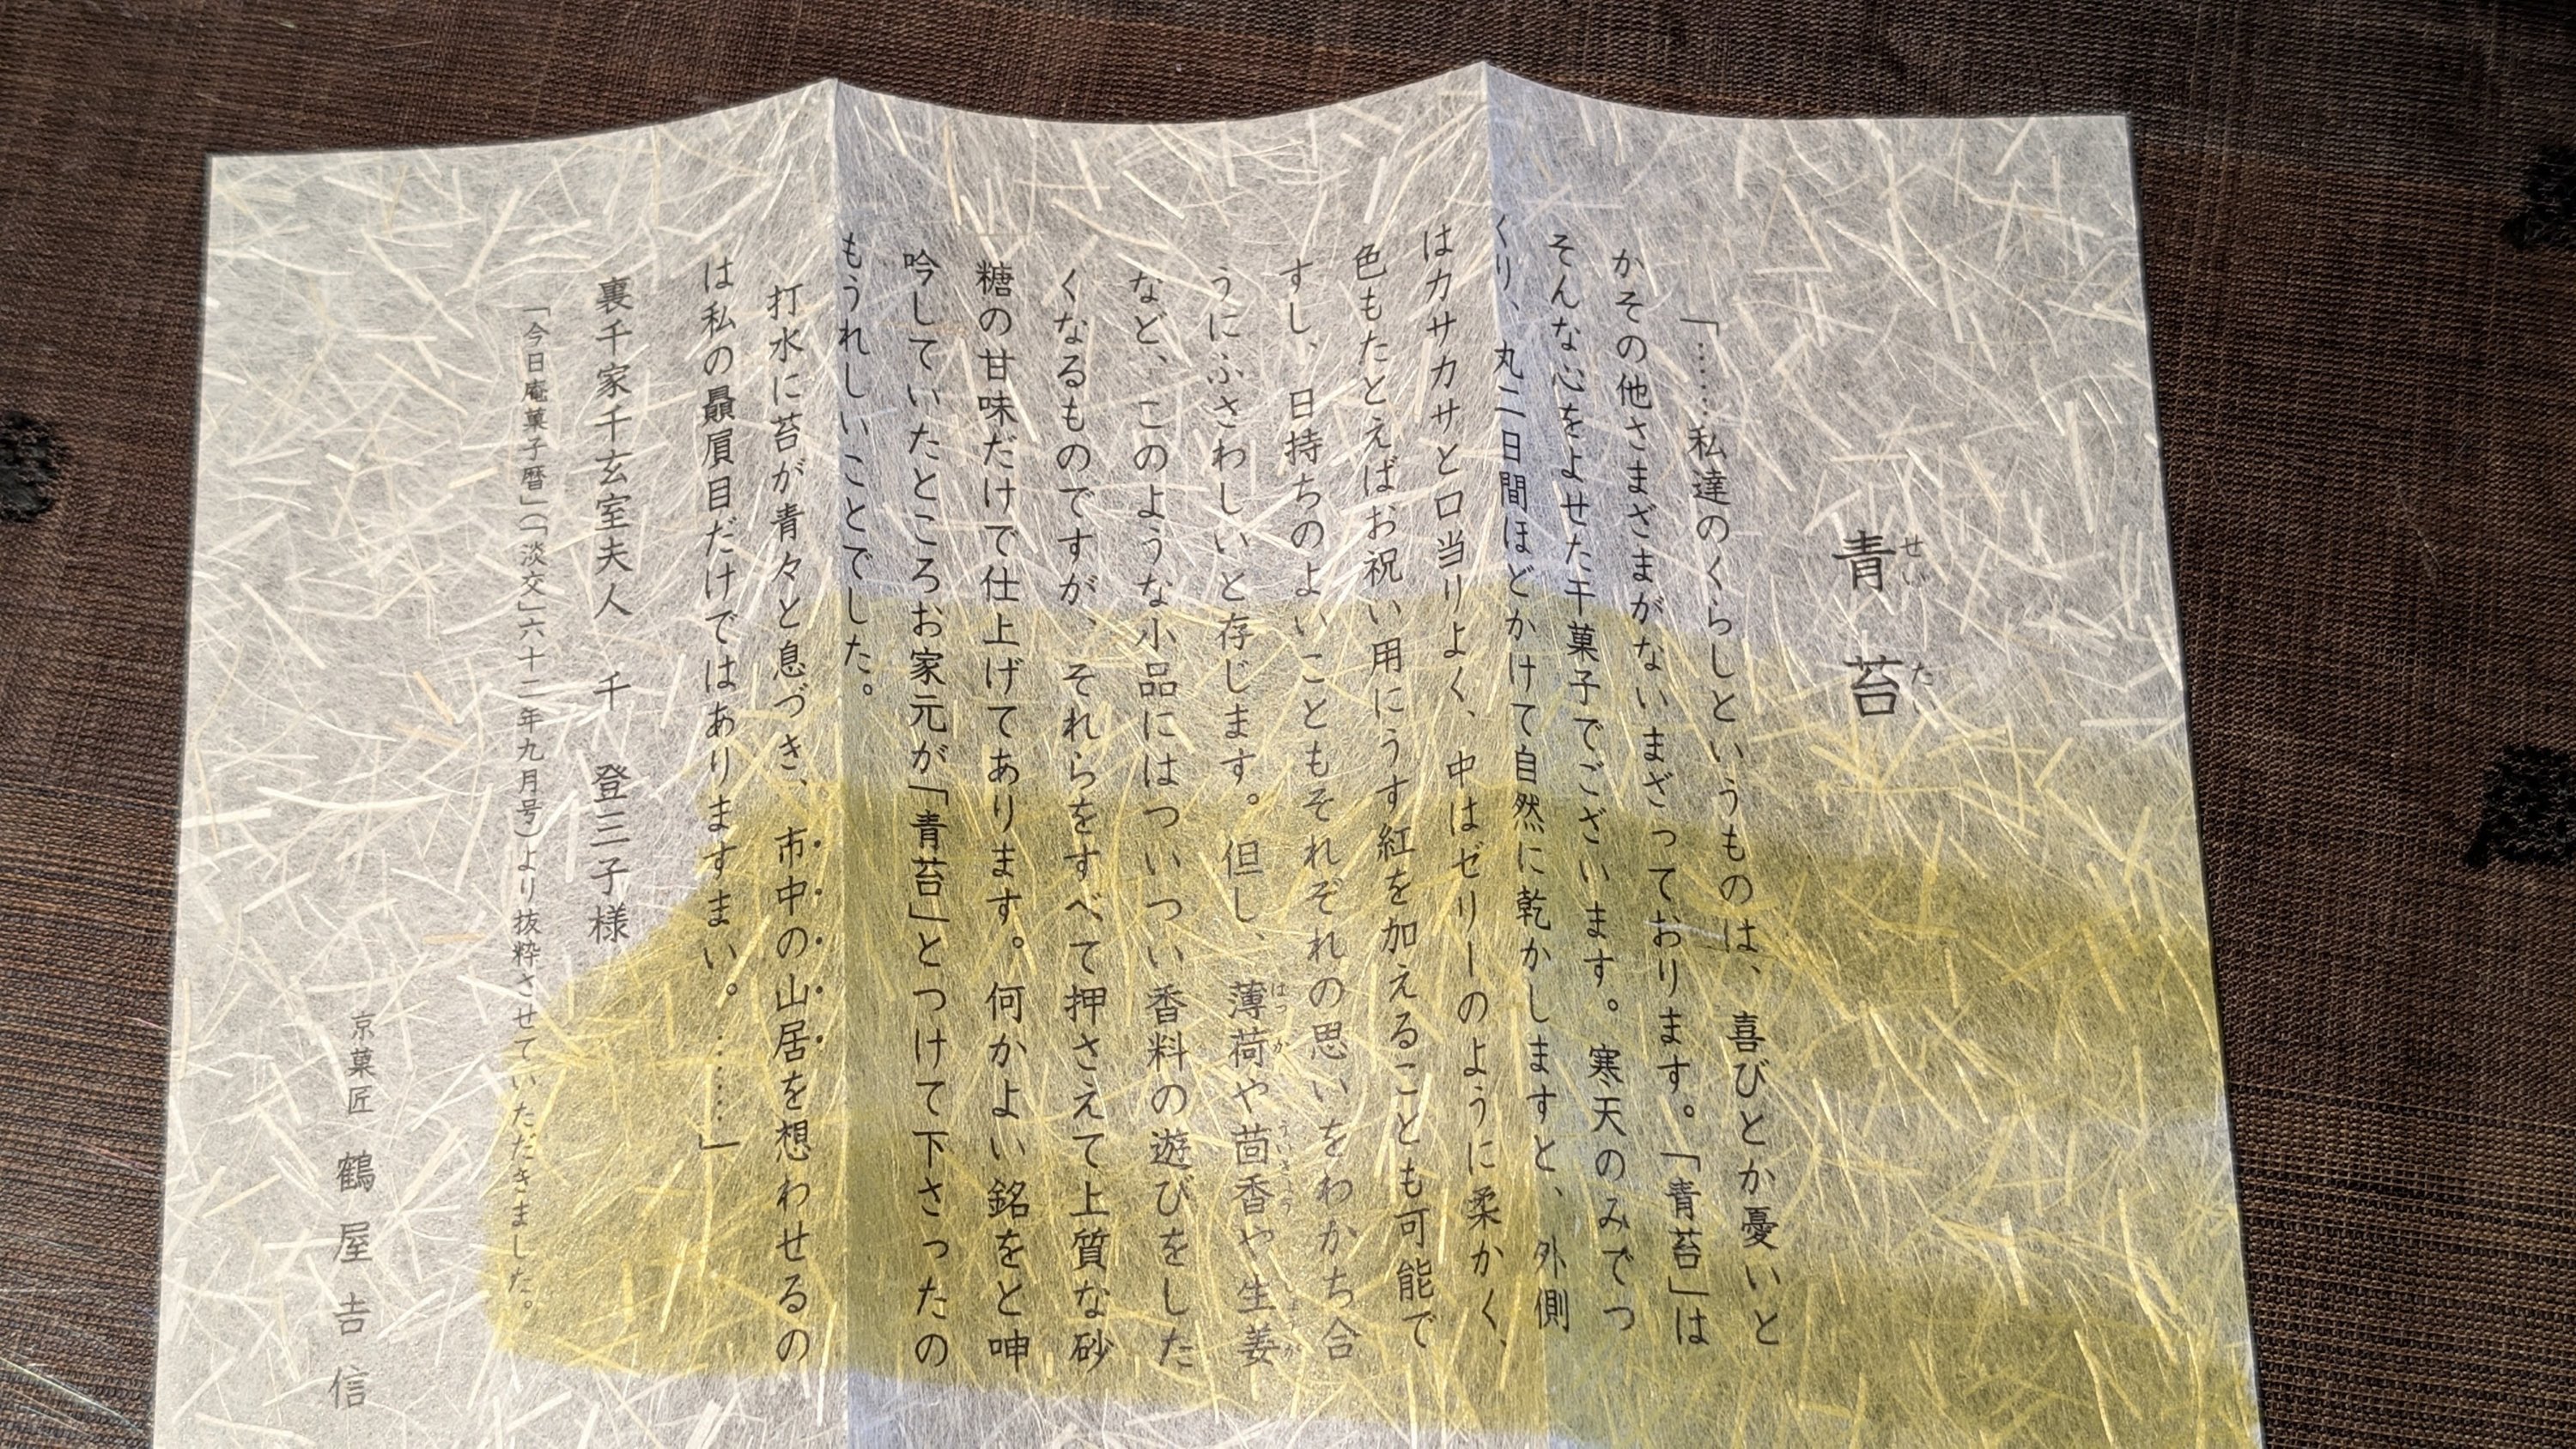 青苔
せいたい
「……私達のくらしというものは、喜びとか憂いと
かその他さまざまがないまざっております。「青苔」は
そんな心をよせた干菓子でございます。寒天のみでつ
くり、丸二日間ほどかけて自然に乾かしますと、外側
はカサカサと口当りよく、中はゼリーのように柔かく、
色もたとえばお祝い用にうす紅を加えることも可能で
すし、日持ちのよいこともそれぞれの思いをわかち合
うにふさわしいと存じます。但し、薄荷や茴香や生姜
はっか ういきょう しょうが
など、このような小品にはついつい香料の遊びをした
くなるものですが、それらをすべて押さえて上質な砂
糖の甘味だけで仕上げてあります。何かよい銘をと呻
吟していたところお家元が「青苔」とつけて下さったの
もうれしいことでした。
打水に苔が青々と息づき、市中の山居を想わせるの
は私の贔屓目だけではありますまい。……」
裏千家千玄室夫人 千 登三子様
「今日庵菓子暦」(「淡交」六十二年九月号)より抜粋させていただきました。
京菓匠 鶴屋吉信